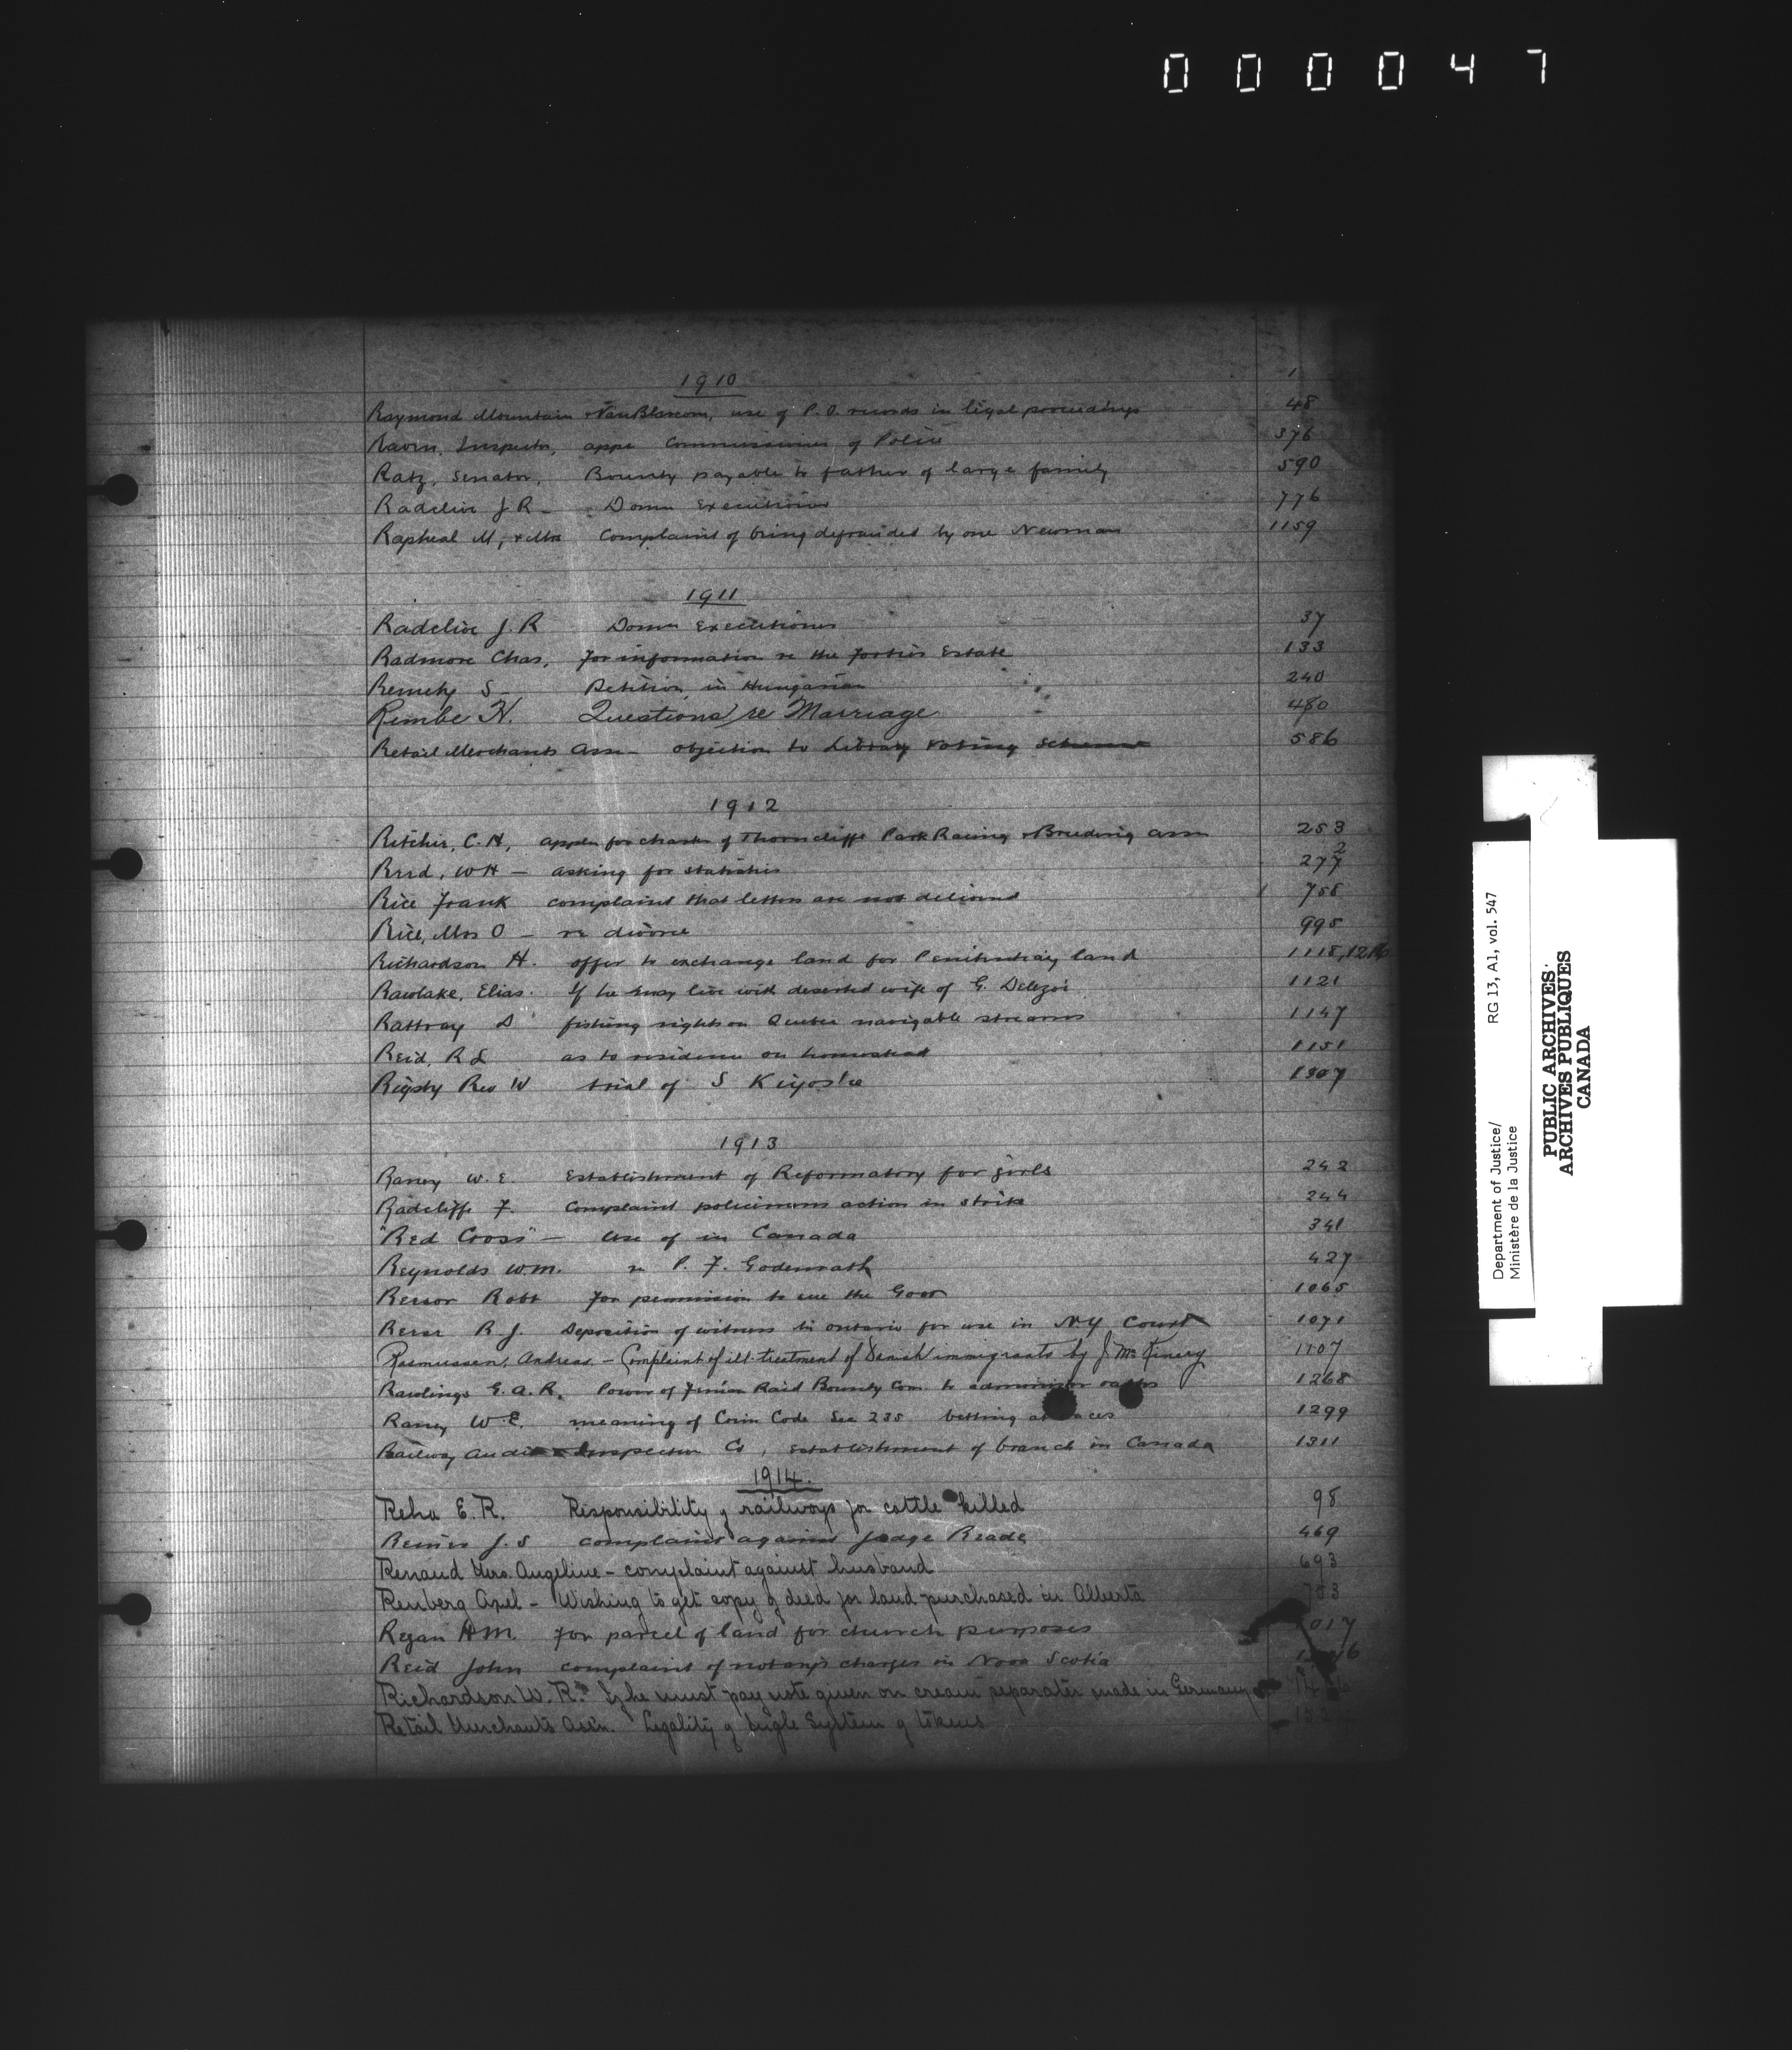 000047
1910
1
Raymond Mountain & VanBlarcom, use of P.O. records in legal proceedings 48
Inspector, appt Commissioner of Police 376
Ratz, Senator, Bounty payable to father of large family 590
Radclive J R - Domn Executioner 776
Rapheal M, & Mrs Complaint of being defrauded by one Newman 1159
1911
Radclive J. R Domn Executioner 37
Radmore Chas, for information re the Estate 133
S - Petition in Hungarian 240
Rimbe H. Questions re Marriage 480
Retail Merchants Assn - objection to Library voting scheme 586
1912
Ritchie, C. H, appln for charter of Thorncliffe Park Racing & Breeding assn 253
Reid, WH - asking for statistics 277 2
Rice Frank complaint that letters are not delivered 758
Rice, Mrs O - re divorce 995
Richardson H. offer to exchange land for Penitentiary land 1118, 1216
Rawlake, Elias. If he may live with deserted wife of G. 1121
Rattray D fishing rights on Quebec navigable streams 1147
Reid, R L as to residence on homestead 1151
Rigsby Rev W trial of S 1307
1913
Raney W. E. Establishment of Reformatory for girls 242
Radcliffe F. Complaint policemens action in strike 244
"Red Cross" - Use of in Canada 341
Reynolds W.M. re P. F. Godenrath 427
Robt for permission to sue the Govr 1065
R. J. Deposition of witness in Ontario for use in NY Court 1071
Rasmussen, Andreas. - Complaint of ill-treatment of Danish immigrants by J McKinery 1107
Rawlings G. A. R. Power of Fenian Raid Bounty Com. to administer oaths 1268
Raney W. E. meaning of Crim Code Sec 235 betting at races 1299
Railway Audit & Inspection Co, Establishment of branch in Canada 1311
1914.
Reha E. R. Responsibility of railways for cattle killed 98
J. S complaint against Judge Reade 469
Renaud Mrs. Angeline - complaint against husband 693
Renberg Axel - Wishing to get copy of deed for land purchased in Alberta 753
Regan H M. for parcel of land for church purposes
Reid John complaint of notary's charges in Nova Scotia
Richardson W. R. If he must pay note given on cream separator made in Germany
Retail Merchants Ass'n. Legality of System of tokens
Department of Justice/ RG 13, A1, vol. 547
Ministère de la Justice
PUBLIC ARCHIVES
ARCHIVES PUBLIQUES
CANADA